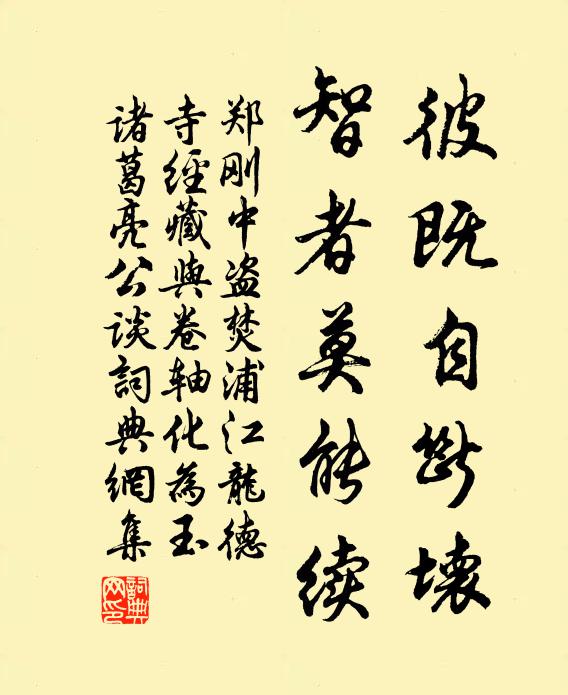 彼既自断壊
智者莫能续
郑刚中盗焚浦江龍德
寺經藏與卷轴化為玉
诸葛亮公谈詞典網集
詞典
网印